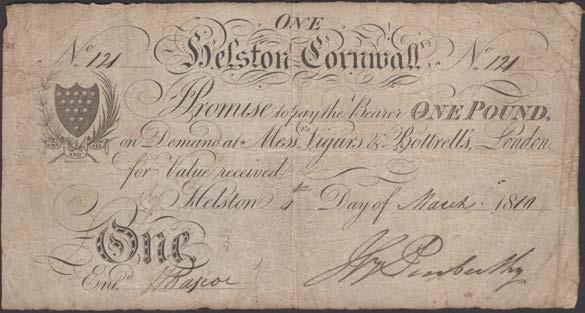 ONE
No. 121 Helston Cornwall No. 121
I Promise to pay the Bearer ONE POUND,
on Demand at Messrs. Vigurs & Bottrell's, London,
ONE AND ALL
for Value received
Helston 1st Day of March 18
£One
Entd. Pascoe Penberthy